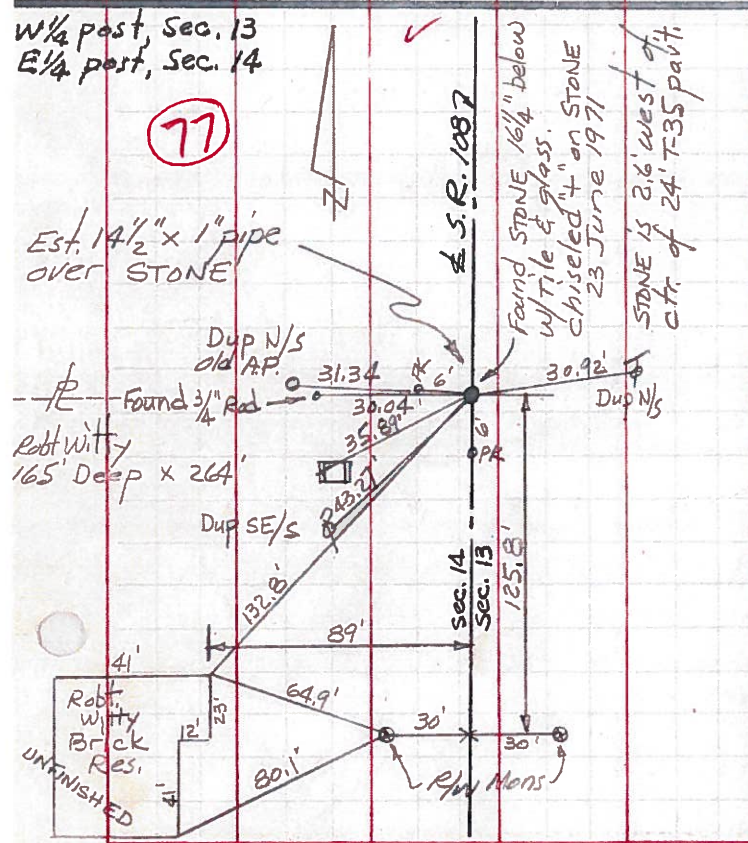 W 1/4 post, Sec. 13
E 1/4 post, Sec. 14
77
N
℄ S.R. 1087
Found STONE 16 1/4" below
W/Tile & glass.
Chiseled "+" on STONE
23 June 1971
STONE is 2.6' west of
ctr. of 24' T-35 pavt.
Est. 14 1/2" x 1" pipe
over STONE
Dup N/S
old A.P.
31.34
PK
6'
30.92'
Dup N/S
Found 3/4" Rod
30.04'
35.89'
6'
PK
Robt Witty
165' Deep x 264'
43.27'
Dup SE/S
132.8'
Sec. 14
Sec. 13
125.8'
89'
41'
Robt.
Witty
Brick
Res.
UNFINISHED
12'
23'
41'
64.9'
80.1'
30'
30'
R/W Mons